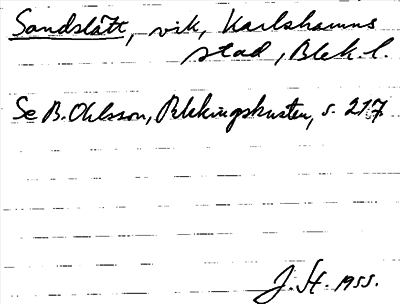 Sandslätt, vik, Karlshamns
stad, Blek. l.
Se B. Ohlsson, Blekingskusten, s. 217
J. St. 1955.